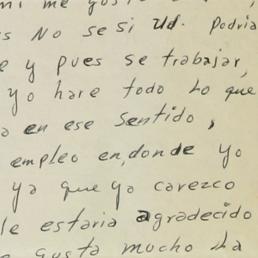 mi me gus
s No se si Ud. Podria
e y pues se trabajar,
yo hare todo Lo que
a en ese Sentido,
empleo en, donde yo
ya que yo carezco
le estaria agradecido
gusta mucho La